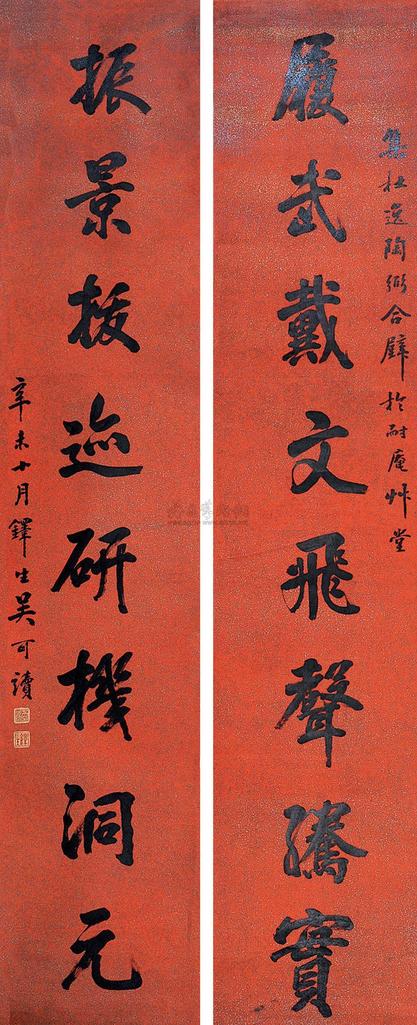 集杜逸陶弼合璧於耐庵艸堂
履武戴文飛聲騰實
振景拔迹研機洞元
辛未十月鐸生吴可讀